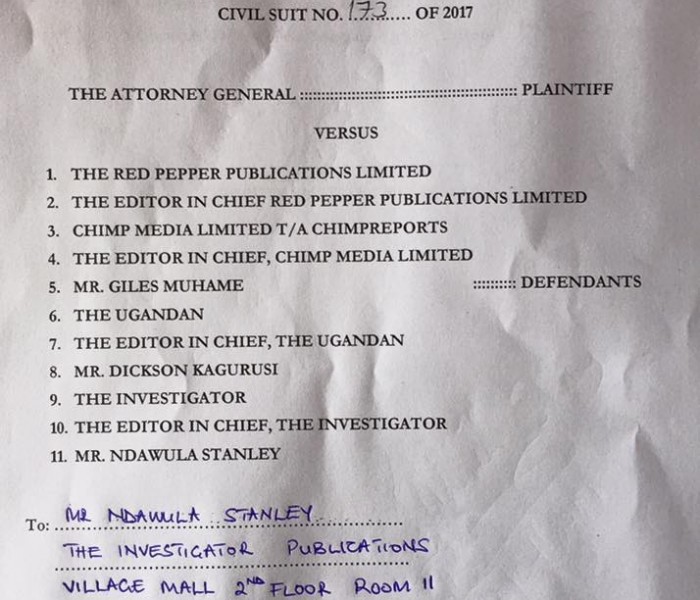 CIVIL SUIT NO. 173..... OF 2017
THE ATTORNEY GENERAL :::::::::::::::::::::::::::::::::::::::::::::::: PLAINTIFF
VERSUS
1. THE RED PEPPER PUBLICATIONS LIMITED
2. THE EDITOR IN CHIEF RED PEPPER PUBLICATIONS LIMITED
3. CHIMP MEDIA LIMITED T/A CHIMPREPORTS
4. THE EDITOR IN CHIEF, CHIMP MEDIA LIMITED
5. MR. GILES MUHAME :::::::::: DEFENDANTS
6. THE UGANDAN
7. THE EDITOR IN CHIEF, THE UGANDAN
8. MR. DICKSON KAGURUSI
9. THE INVESTIGATOR
10. THE EDITOR IN CHIEF, THE INVESTIGATOR
11. MR. NDAWULA STANLEY
To: MR NDAWULA STANLEY
THE INVESTIGATOR PUBLICATIONS
VILLAGE MALL 2ND FLOOR ROOM 11